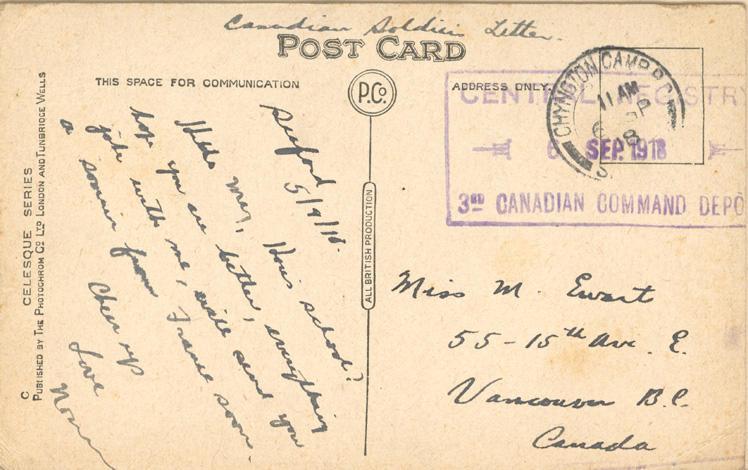 Canadian Soldiers Letter.
POST CARD
THIS SPACE FOR COMMUNICATION
P.Co.
ADDRESS ONLY.
CHYNGTON CAMP
11 AM
6 SP
18
CENTRAL REGISTRY
6 SEP. 1918
3RD CANADIAN COMMAND DEPO
Seaford
5/9/18.
Hello May, Hows school?
hope you are better, everything
jake with me, will send you
a souvenir from France soon.
Cheer up
Love
Norman
Miss M. Ewart
55-15th Ave. E.
Vancouver B.C.
Canada
ALL BRITISH PRODUCTION
C
CELESQUE SERIES
PUBLISHED BY THE PHOTOCHROM CO LTD LONDON AND TUNBRIDGE WELLS